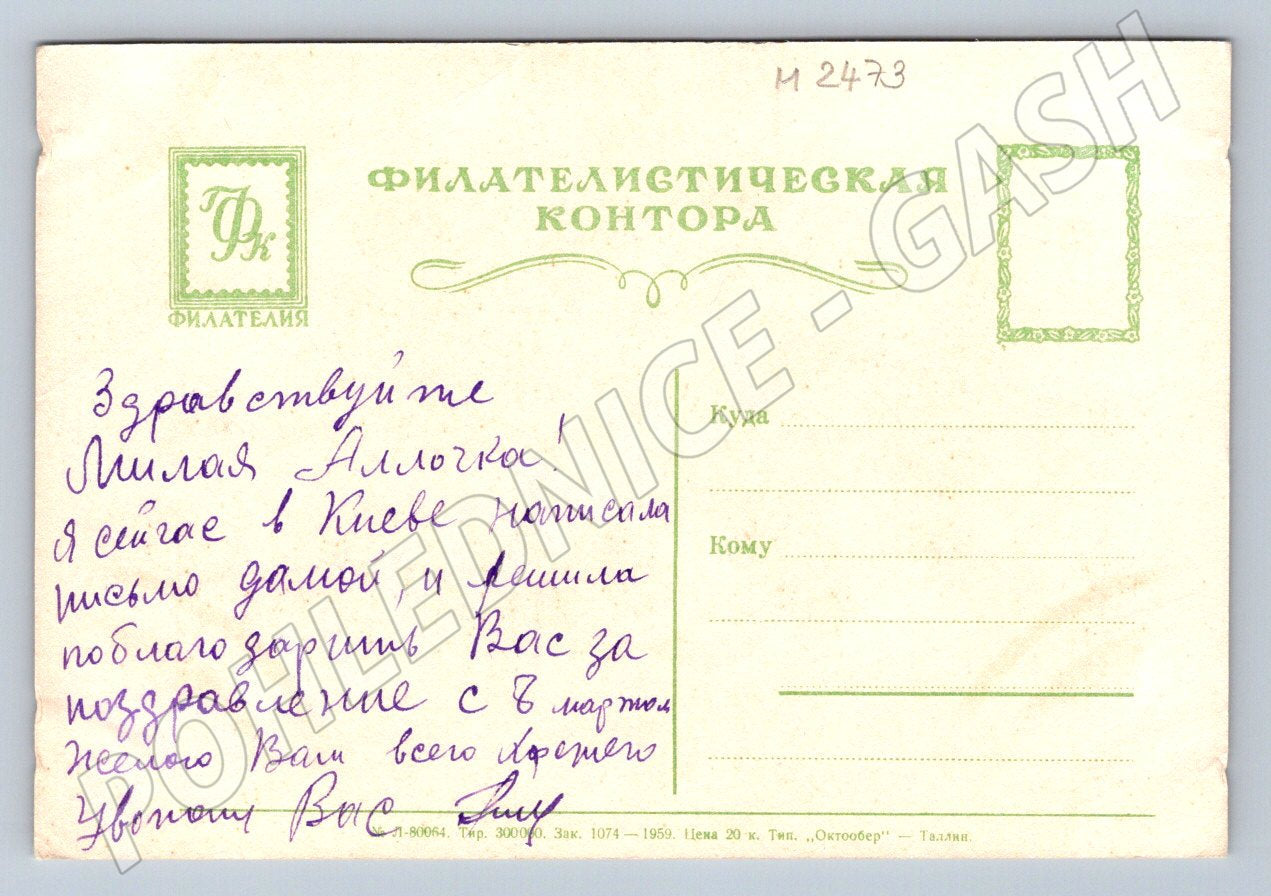 И 2473
ФИЛАТЕЛИСТИЧЕСКАЯ
КОНТОРА
ГФК
ФИЛАТЕЛИЯ
Здравствуйте
Милая Аллочка!
Я сейчас в Киеве написала
письмо дамой, и решила
поблагодарить Вас за
поздравление с 8 мартом
Желаю Вам всего
Вас
Куда
Кому
№ Л-80064. Тир. 300000. Зак. 1074 — 1959. Цена 20 к. Тип. „Октообер" — Таллин.
POHLEDNICE - GASH